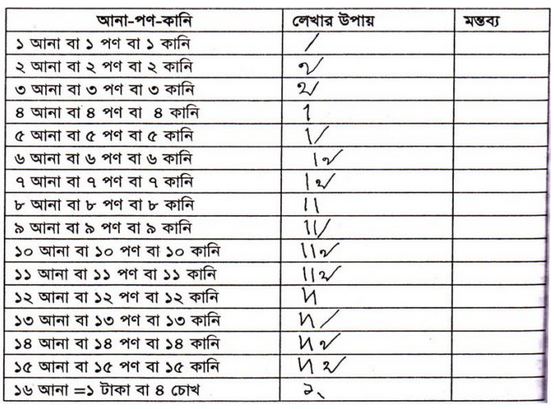 আনা-পণ-কানি লেখার উপায় মন্তব্য
১ আনা বা ১ পণ বা ১ কানি
২ আনা বা ২ পণ বা ২ কানি
৩ আনা বা ৩ পণ বা ৩ কানি
৪ আনা বা ৪ পণ বা ৪ কানি
৫ আনা বা ৫ পণ বা ৫ কানি
৬ আনা বা ৬ পণ বা ৬ কানি
৭ আনা বা ৭ পণ বা ৭ কানি
৮ আনা বা ৮ পণ বা ৮ কানি
৯ আনা বা ৯ পণ বা ৯ কানি
১০ আনা বা ১০ পণ বা ১০ কানি
১১ আনা বা ১১ পণ বা ১১ কানি
১২ আনা বা ১২ পণ বা ১২ কানি
১৩ আনা বা ১৩ পণ বা ১৩ কানি
১৪ আনা বা ১৪ পণ বা ১৪ কানি
১৫ আনা বা ১৫ পণ বা ১৫ কানি
১৬ আনা =১ টাকা বা ৪ চোখ